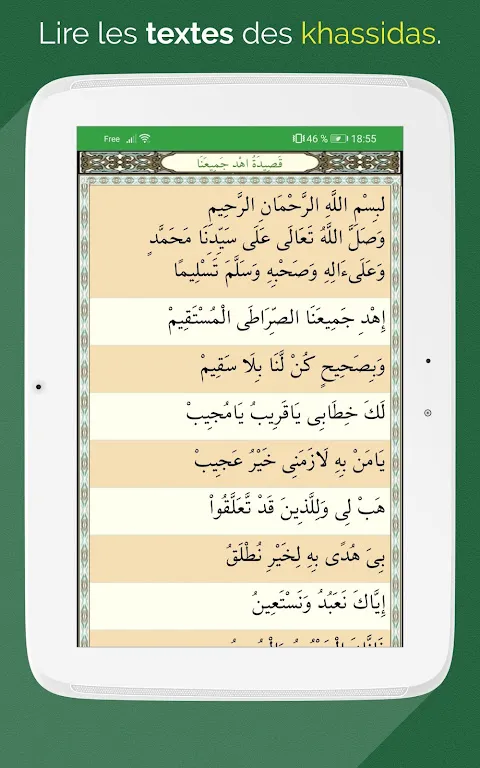 Lire les textes des khassidas.
Free 46 % 18:55
قَصِيدَةُ اهْدِ جَمِيعَنَا
لبِسْمِ اللَّهِ الرَّحْمَانِ الرَّحِيمِ
وَصَلَّ اللَّهُ تَعَالَى عَلَى سَيِّدِنَا مَحَمَّدٍ
وَعَلَىءَالِهِ وَصَحْبِهِ وَسَلَّمَ تَسْلِيمًا
إِهْدِ جَمِيعَنَا الصِّرَاطَى الْمُسْتَقِيمْ
وَبِصَحِيحٍ كُنْ لَّنَا بِلَا سَقِيمْ
لَكَ خِطَابِى يَاقَرِيبُ يَامُجِيبْ
يَامَنْ بِهِ لَازَمَنِى خَيْرُ عَجِيبْ
هَبْ لِى وَلِلَّذِينَ قَدْ تَّعَلَّقُواْ
بِىَ هُدًى بِهِ لِخَيْرِ نُطْلَقُ
إِيَّاكَ نَعَبُدُ وَنَسْتَعِينُ